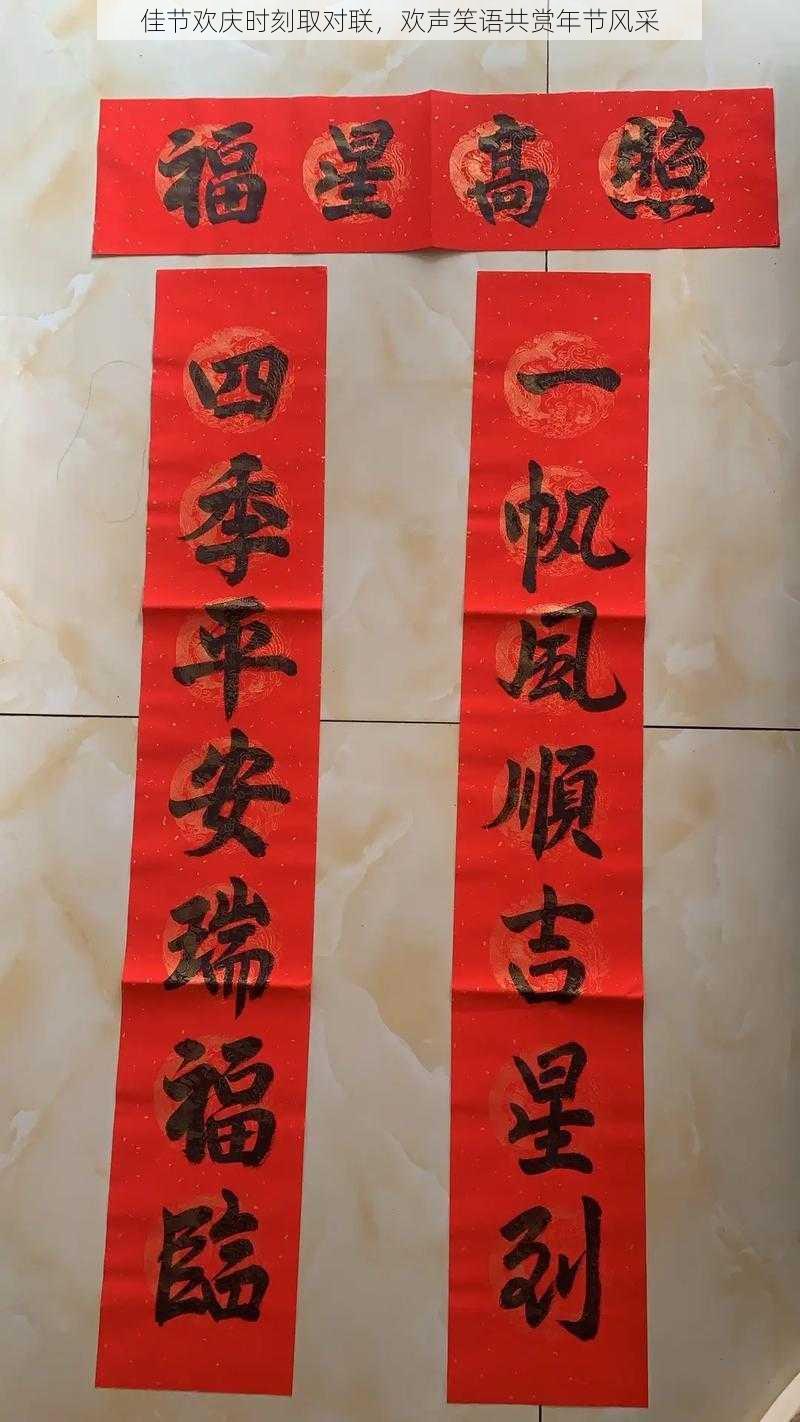 佳节欢庆时刻取对联，欢声笑语共赏年节风采
福星高照
一帆风顺吉星到
四季平安瑞福临